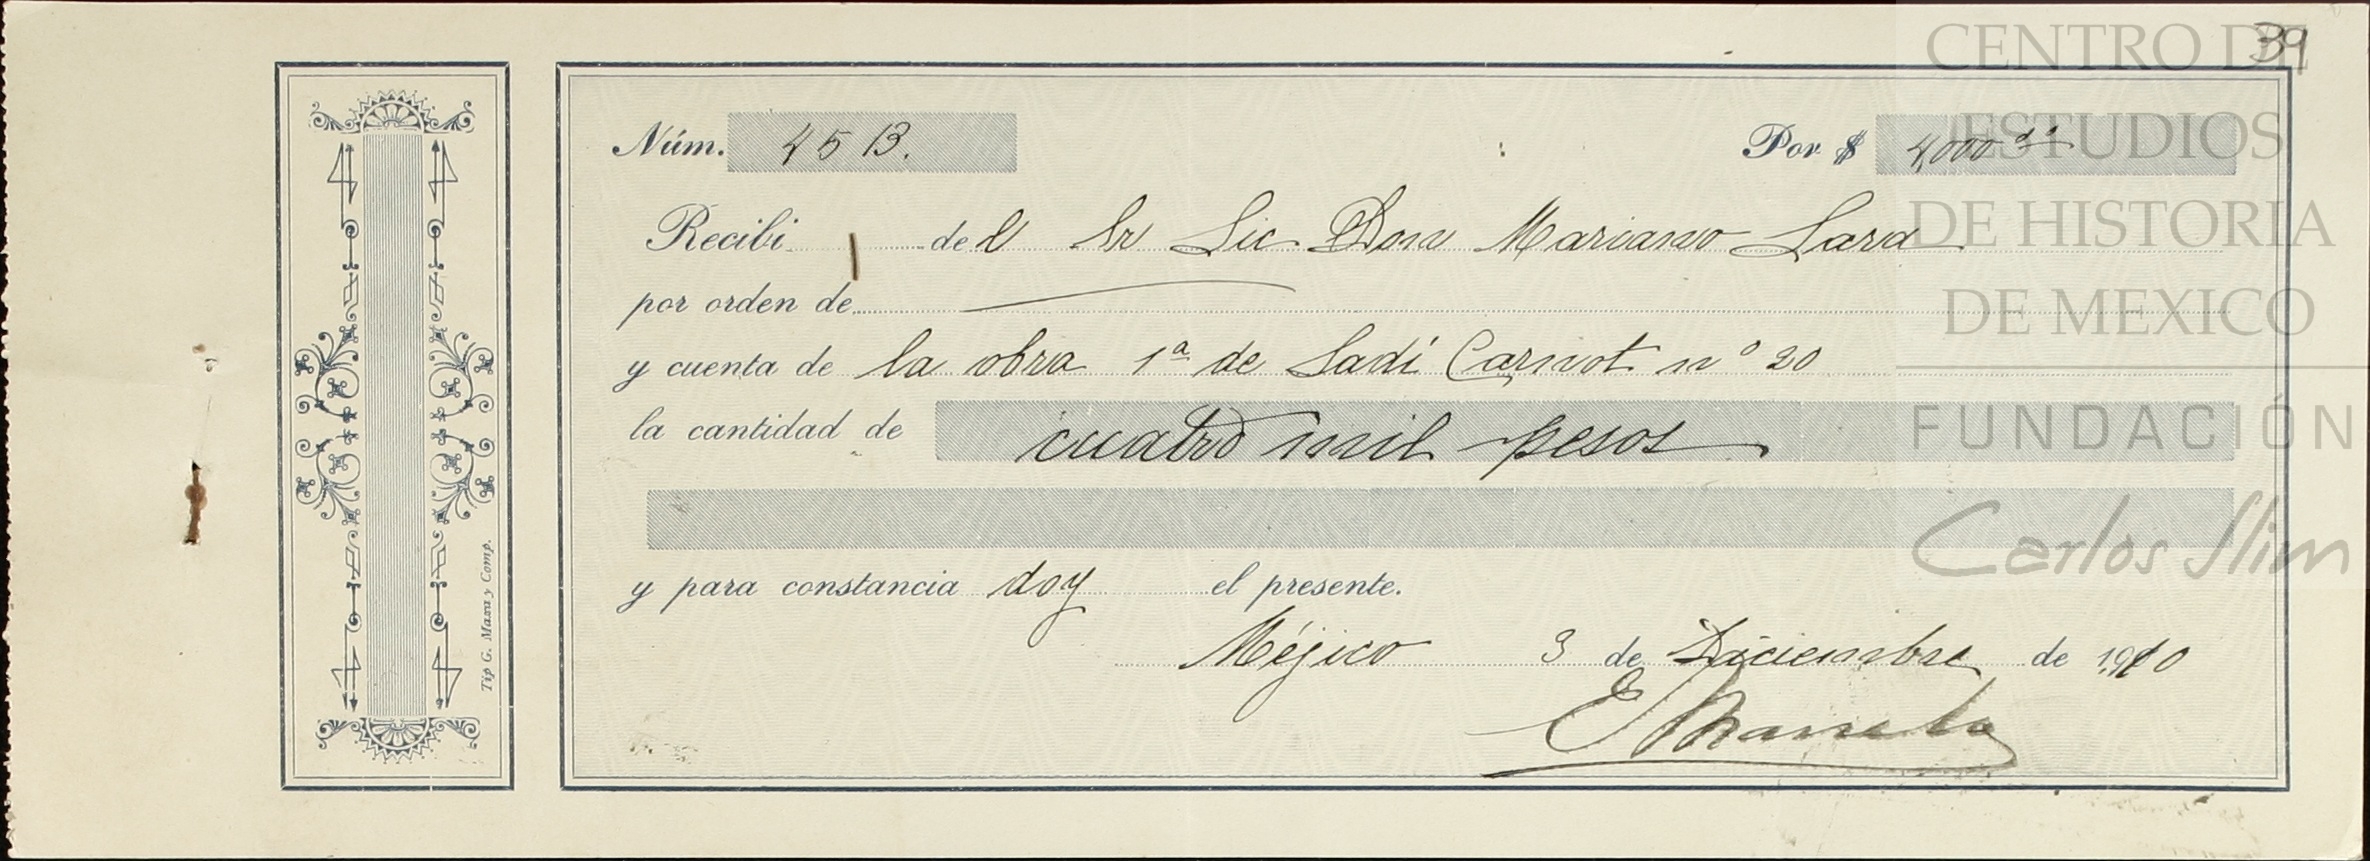 39
Núm. 45 B. Por $ 4,000
Recibí del Sr Lic Don Mariano Lara
por orden de
y cuenta de la obra 1ª de Sadi Carnot nº 20
la cantidad de cuatro mil pesos
y para constancia doy el presente.
Méjico 3 de Diciembre de 1910
Tip G. Massa y Comp.
CENTRO DE
ESTUDIOS
DE HISTORIA
DE MEXICO
FUNDACIÓN
Carlos Slim